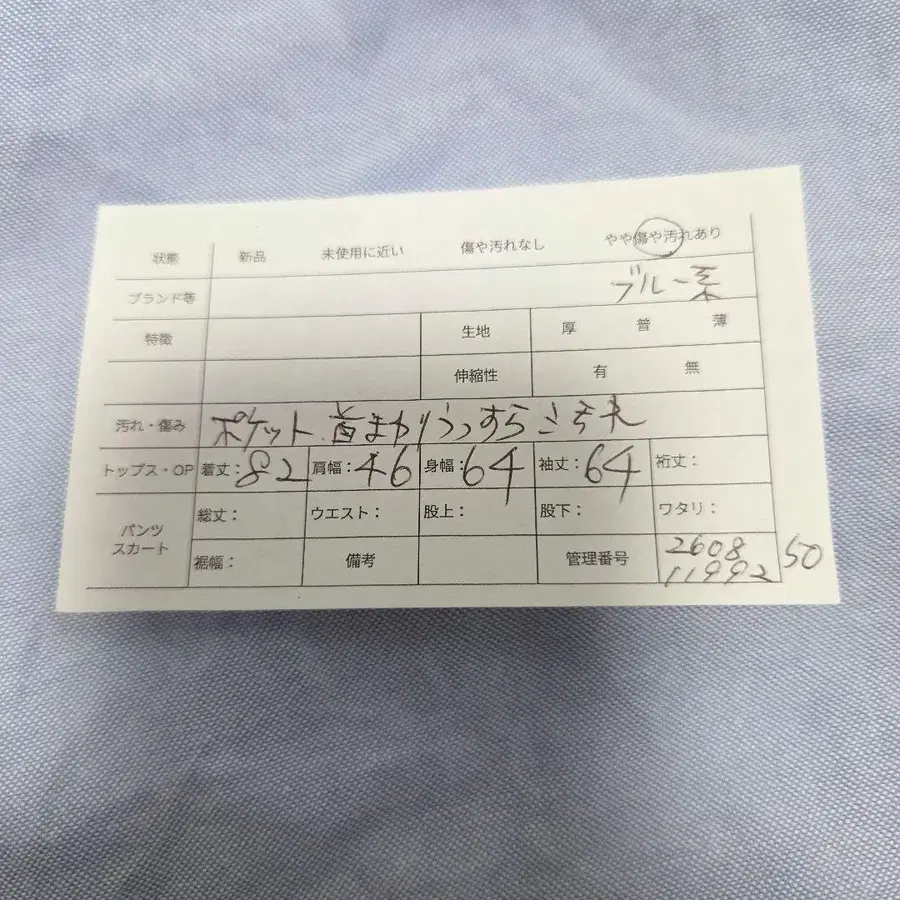 状態 新品 未使用に近い 傷や汚れなし やや傷や汚れあり
ブランド等 ブルー系
特徴 生地 厚 普 薄
伸縮性 有 無
汚れ・傷み ポケット、首まわりうっすら
トップス・OP 着丈:82 肩幅:46 身幅:64 袖丈:64 裄丈:
パンツ 総丈: ウエスト: 股上: 股下: ワタリ:
スカート 裾幅: 備考 管理番号 2608 50
11992